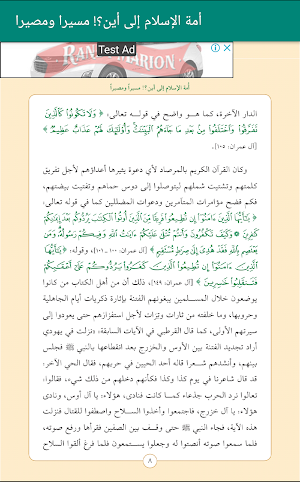 أمة الإسلام إلى أين؟! مسيرا ومصيرا
RAN MARION
Test Ad
أمة الإسلام إلى أين؟! مسيراً ومصيراً
الدار الآخرة، كما هو واضح في قولـه تعالى: ﴿ وَلَا تَكُونُوا كَالَّذِينَ
تَفَرَّقُوا وَاخْتَلَفُوا مِنْ بَعْدِ مَا جَاءَهُمُ الْبَيِّنَاتُ وَأُولَئِكَ لَهُمْ عَذَابٌ عَظِيمٌ ﴾
[آل عمران: ١٠٥].
وكان القرآن الكريم بالمرصاد لأي دعوة يثيرها أعداؤهم لأجل تفريق
كلمتهم وتشتيت شملهم ليتوصلوا إلى دوس حماهم وتفتيت بيضتهم،
فكم فضح مؤامرات المتآمرين ودعوات المضللين كما في قوله تعالى:
﴿ يَا أَيُّهَا الَّذِينَ آمَنُوا إِنْ تُطِيعُوا فَرِيقًا مِنَ الَّذِينَ أُوتُوا الْكِتَابَ يَرُدُّوكُمْ بَعْدَ إِيمَانِكُمْ
كَافِرِينَ ۝ وَكَيْفَ تَكْفُرُونَ وَأَنْتُمْ تُتْلَى عَلَيْكُمْ آيَاتُ اللَّهِ وَفِيكُمْ رَسُولُهُ وَمَنْ
يَعْتَصِمْ بِاللَّهِ فَقَدْ هُدِيَ إِلَى صِرَاطٍ مُسْتَقِيمٍ ﴾ [آل عمران: ١٠٠-١٠١]، وقوله: ﴿ يَا أَيُّهَا
الَّذِينَ آمَنُوا إِنْ تُطِيعُوا الَّذِينَ كَفَرُوا يَرُدُّوكُمْ عَلَى أَعْقَابِكُمْ
فَتَنْقَلِبُوا خَاسِرِينَ ﴾ [آل عمران: ١٤٩]، ذلك أن من أهل الكتاب من كانوا
يوضعون خلال المسلـمين يبغونهم الفتنة بإثارة ذكريات أيام الجاهلية
وحروبها، وما خلفته من ثارات وترات لأجل استفزازهم حتى يعودوا إلى
سيرتهم الأولى، كما قال القرطبي في الآيات السابقة: «نزلت في يهودي
أراد تجديد الفتنة بين الأوس والخزرج بعد انقطاعها بالنبي ﷺ فجلس
بينهم، وأنشدهم شعرا قاله أحد الحيين في حربهم، فقال الحي الآخر:
قد قال شاعرنا في يوم كذا وكذا فكأنهم دخلهم من ذلك شيء، فقالوا:
تعالوا نرد الحرب جذعاء كمـا كانت فنادى، هؤلاء: يا آل أوس؛ ونادى
هؤلاء: يا آل خزرج، فاجتمعوا وأخذوا السلاح واصطفوا للقتال فنزلت
هذه الآية، فجاء النبي ﷺ حتى وقف بين الصفين فقرأها ورفع صوته،
فلما سمعوا صوته أنصتوا له وجعلوا يستمعون فلما فرغ ألقوا السلاح
٨